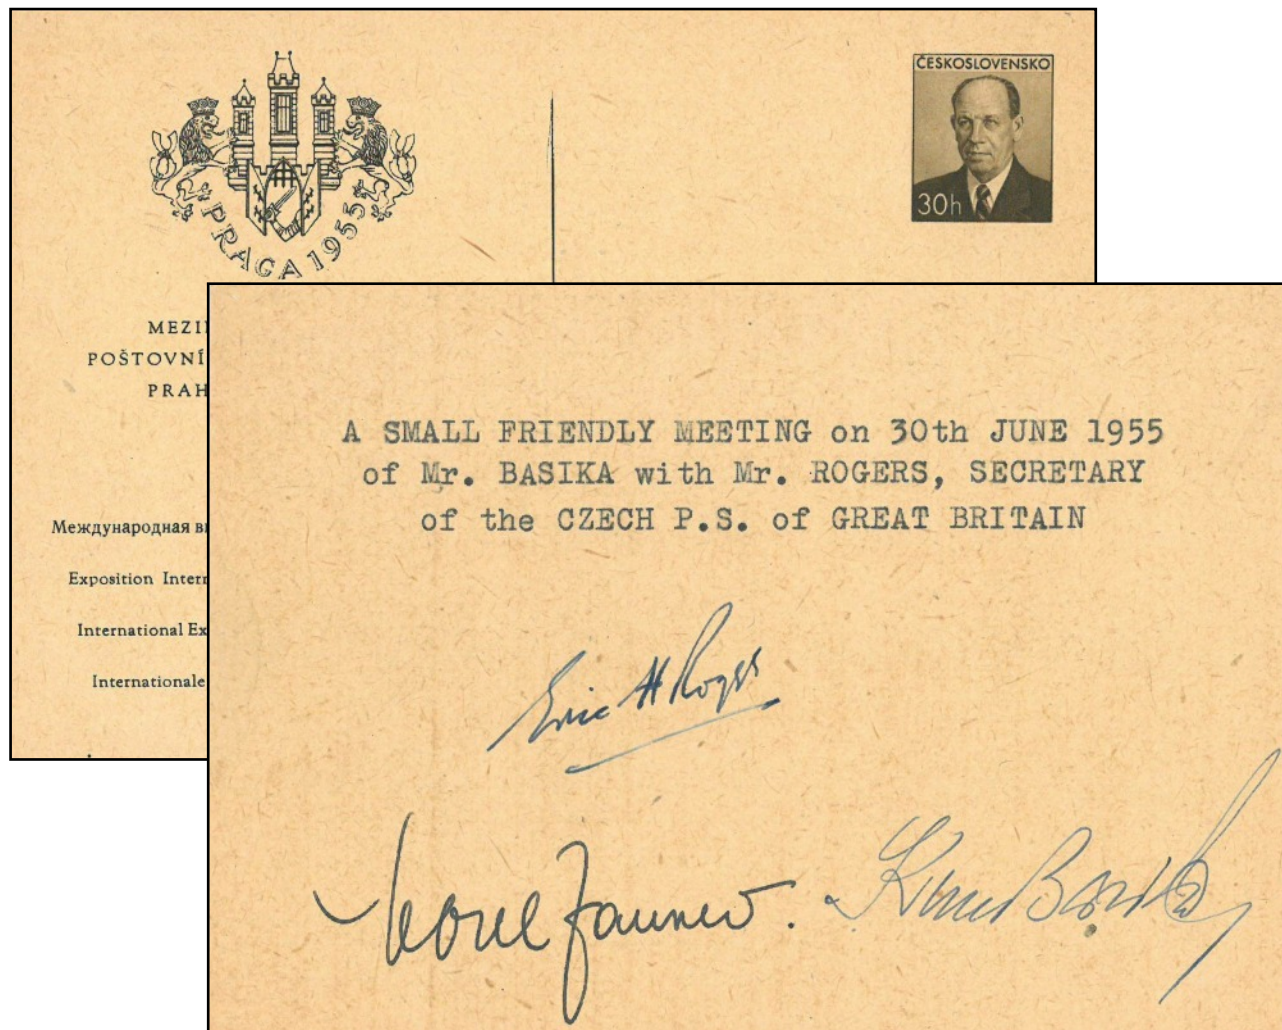 ČESKOSLOVENSKO
30h
PRAGA 1955
MEZI
POŠTOVNÍ
PRAH
Международная
Exposition Inter
International Ex
Internationale
A SMALL FRIENDLY MEETING on 30th JUNE 1955
of Mr. BASIKA with Mr. ROGERS, SECRETARY
of the CZECH P.S. of GREAT BRITAIN
Eric H Rogers